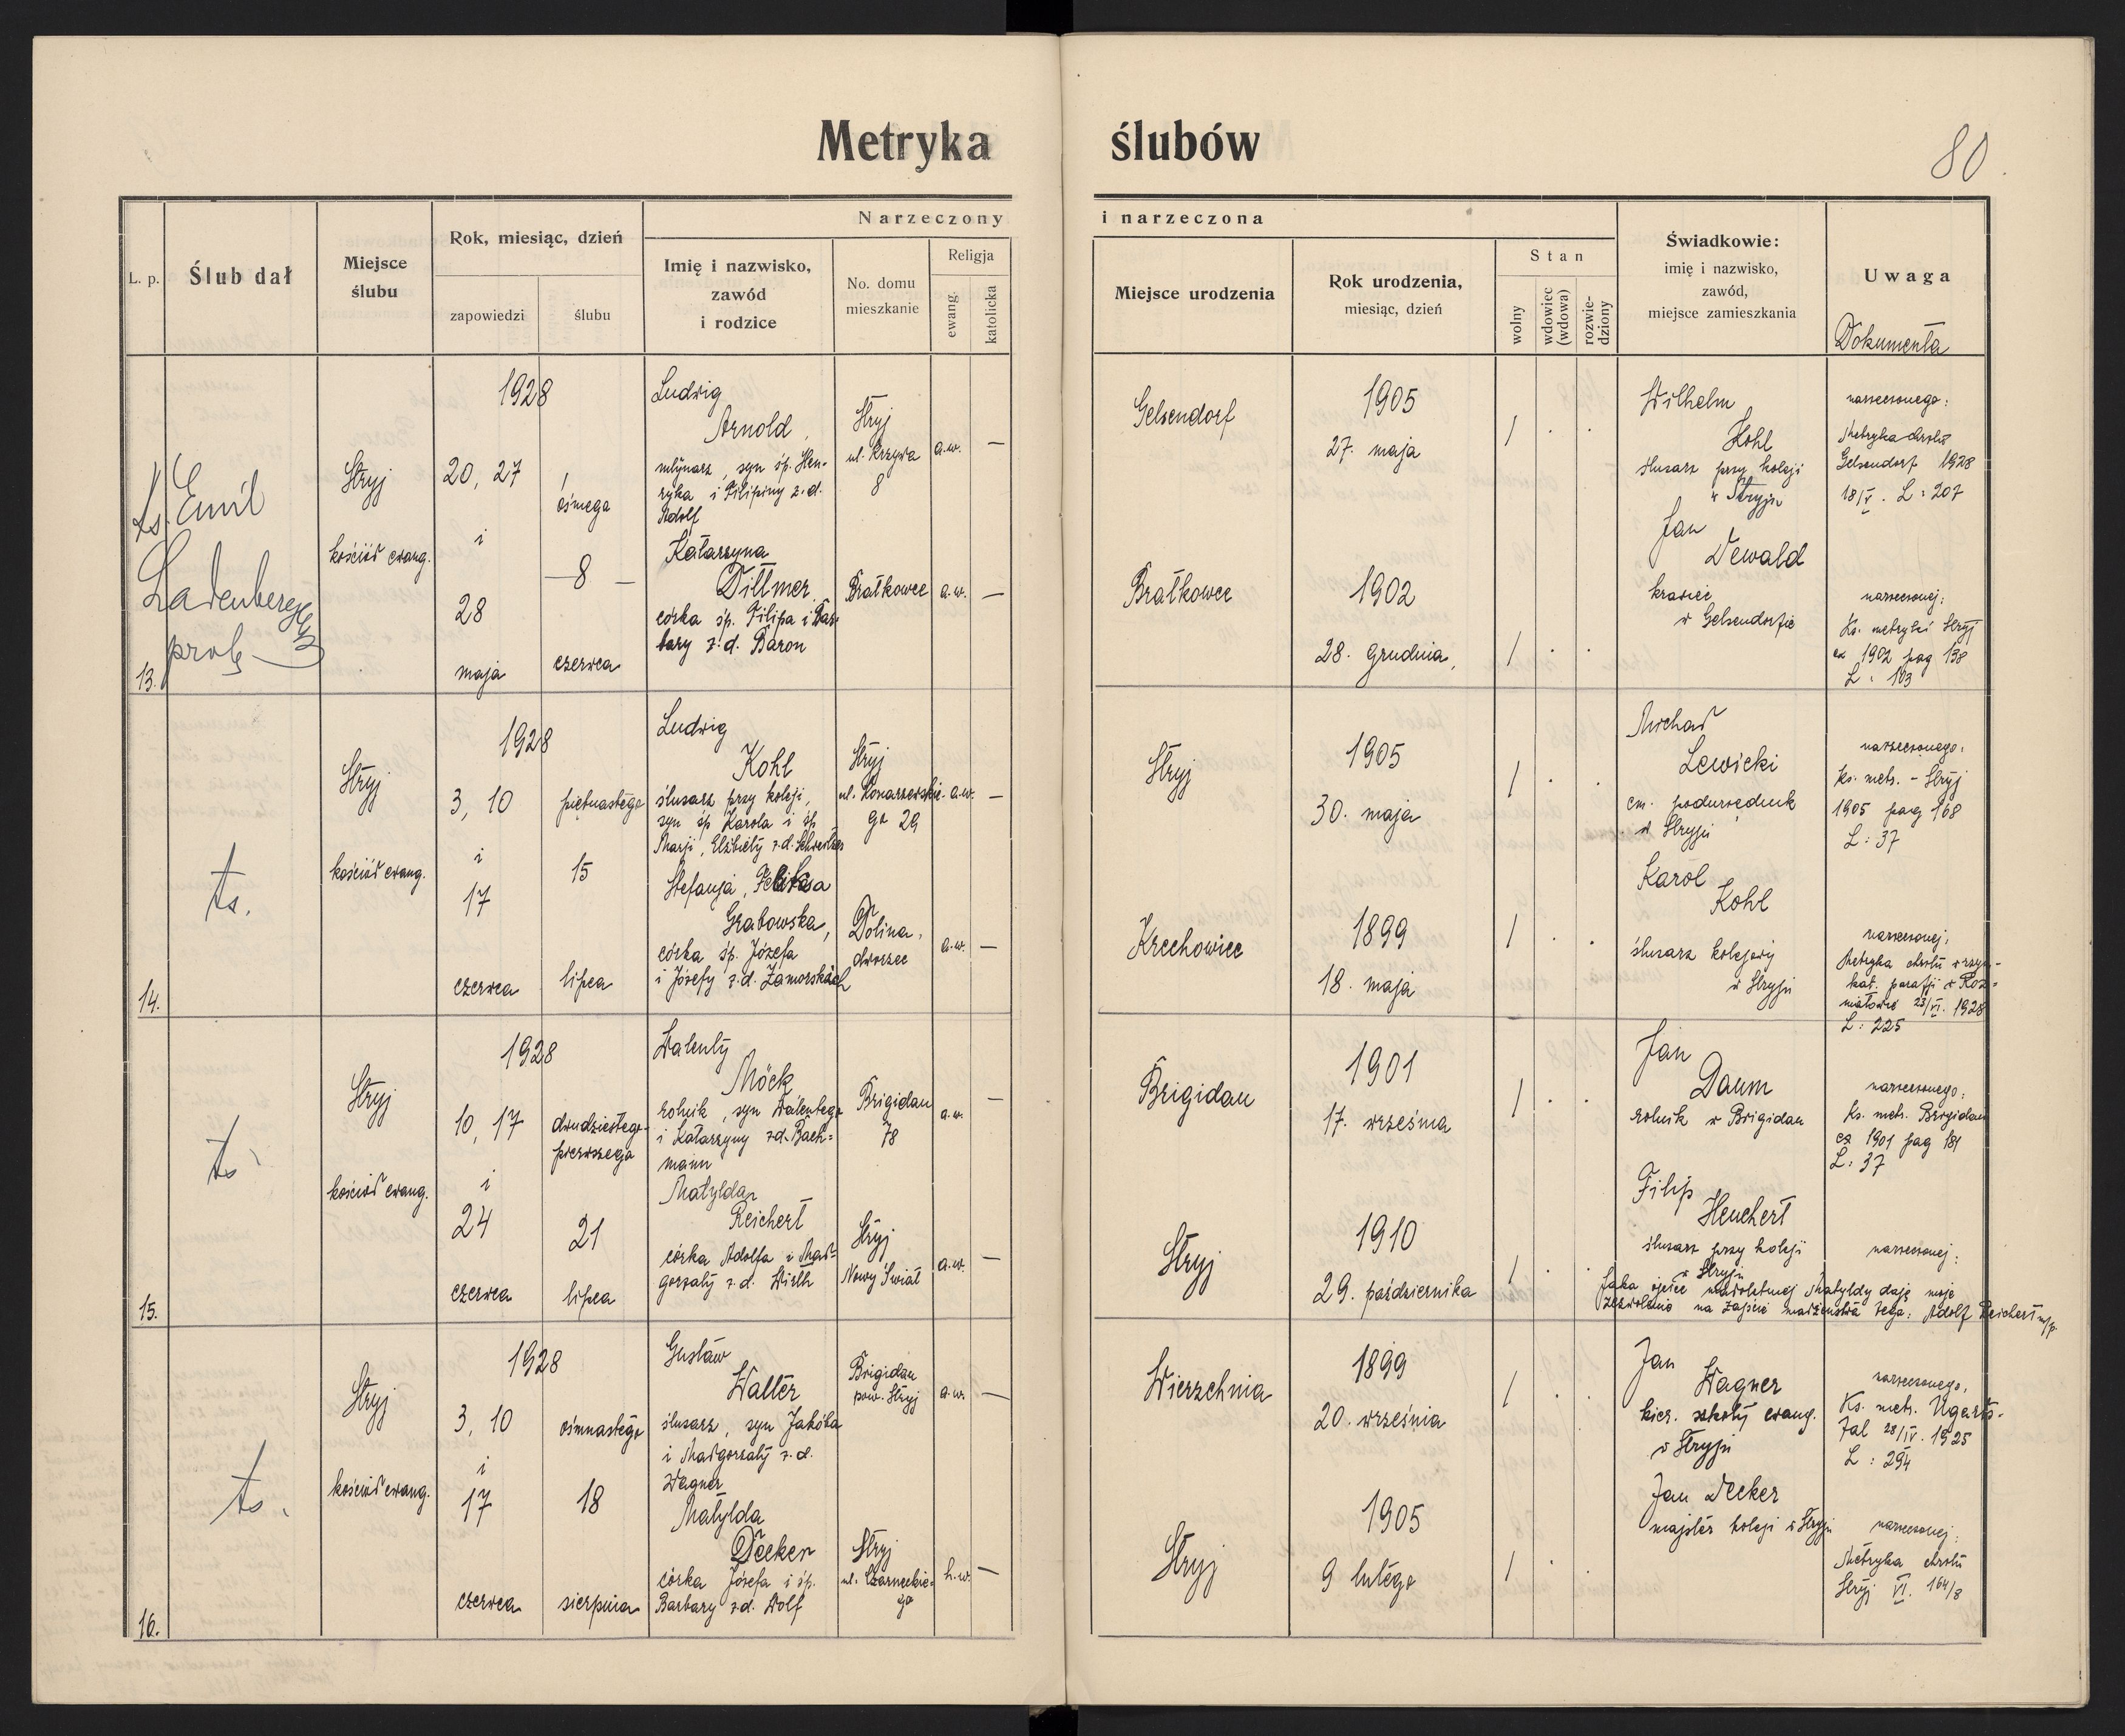 Metryka ślubów
80
L. p.
Ślub dał
Miejsce
ślubu
Rok, miesiąc, dzień
zapowiedzi
ślubu
Narzeczony
Imię i nazwisko,
zawód
i rodzice
No. domu
mieszkanie
Religja
ewang.
katolicka
i narzeczona
Miejsce urodzenia
Rok urodzenia,
miesiąc, dzień
Stan
wolny
wdowiec
(wdowa)
rozwie-
dziony
Świadkowie:
imię i nazwisko,
zawód,
miejsce zamieszkania
Uwaga
Dokumenta
13.
Ks. Emil
Ladenberger
prob.
Stryj
kościół ewang.
1928
20, 27
i
28
maja
ósmego
— 8 —
czerwca
Ludwig
Arnold,
młynarz, syn śp. Hen-
ryka i Filipiny z.d.
Adolf
Stryj
ul. Krzywa
8
a.w.
—
Katarzyna
Dittmer,
córka śp. Filipa i Bar-
bary z.d. Baron
Bratkowce
a.w.
—
Gelsendorf
1905
27. maja
/ . .
Bratkowce
1902
28. grudnia,
/ . .
Wilhelm
Kohl
ślusarz przy kolei
w Stryju
Jan
Dewald
krawiec
w Gelsendorfie
narzeczonego:
Metryka chrztu
Gelsendorf 1928
18/V. L: 207
narzeczonej:
Ks. metryki Stryj
ex 1902 pag 138
L: 103
14.
ts.
Stryj
kościół ewang.
1928
3, 10
i
17
czerwca
piętnastego
15
lipca
Ludwig
Kohl
ślusarz przy kolei,
syn śp Karola i śp
Marji, Elżbiety z.d.
Stryj
ul. Konarzewskie-
go 29
a.w.
—
Stefanja,
Grabowska,
córka śp. Józefa
i Józefy z.d. Zamorskich
Dolina,
dworzec
a.w.
—
Stryj
1905
30. maja
/ . .
Krechowice
1899
18. maja
/ . .
Michał
Lewicki
em. podurzędnik
w Stryju
Karol
Kohl
ślusarz kolejowy
w Stryju
narzeczonego:
Ks. metr. - Stryj
1905 pag 168
L: 37
narzeczonej:
Metryka chrztu w rzym-
kat. parafji w Roż-
niatowie 23/VI. 1928
L: 225
15.
ts.
Stryj
kościół ewang.
1928
10, 17
i
24
czerwca
dwudziestego
pierwszego
21
lipca
Walenty
Möck
rolnik, syn Walentego
i Katarzyny z.d. Bach-
mann
Brigidau
78
a.w.
—
Matylda
Reichert
córka Adolfa i Mał-
gorzaty z.d. Wirth
Stryj
Nowy Świat
a.w.
—
Brigidau
1901
17. września
/ . .
Stryj
1910
29. października
/ . .
Jan
Daum
rolnik w Brigidau
Filip
Heuchert
ślusarz przy kolei
w Stryju
narzeczonego:
Ks. metr. Brigidau
ex 1901 pag 181
L: 37
narzeczonej:
Jako ojciec małoletniej Matyldy daję moje
zezwolenie na zajście małżeństwa tego: Adolf Reichert m/p.
16.
ts.
Stryj
kościół ewang.
1928
3, 10
i
17
czerwca
ośmnastego
18
sierpnia
Gustaw
Walter
ślusarz, syn Jakóba
i Małgorzaty z.d.
Wagner
Brigidau
pow. Stryj
a.w.
—
Matylda
Decker
córka Józefa i śp.
Barbary z.d. Wolf
Stryj
ul. Czarneckie-
go
h.w.
—
Wierzchnia
1899
20. września
/ . .
Stryj
1905
9 lutego
/ .
Jan
Wagner
kier. szkoły ewang.
w Stryju
Jan Decker
majster kolej w Stryju
narzeczonego,
Ks. metr. Ugarts-
tal 28/IV. 1925
L: 294
narzeczonej:
Metryka chrztu
Stryj VI. 164/8